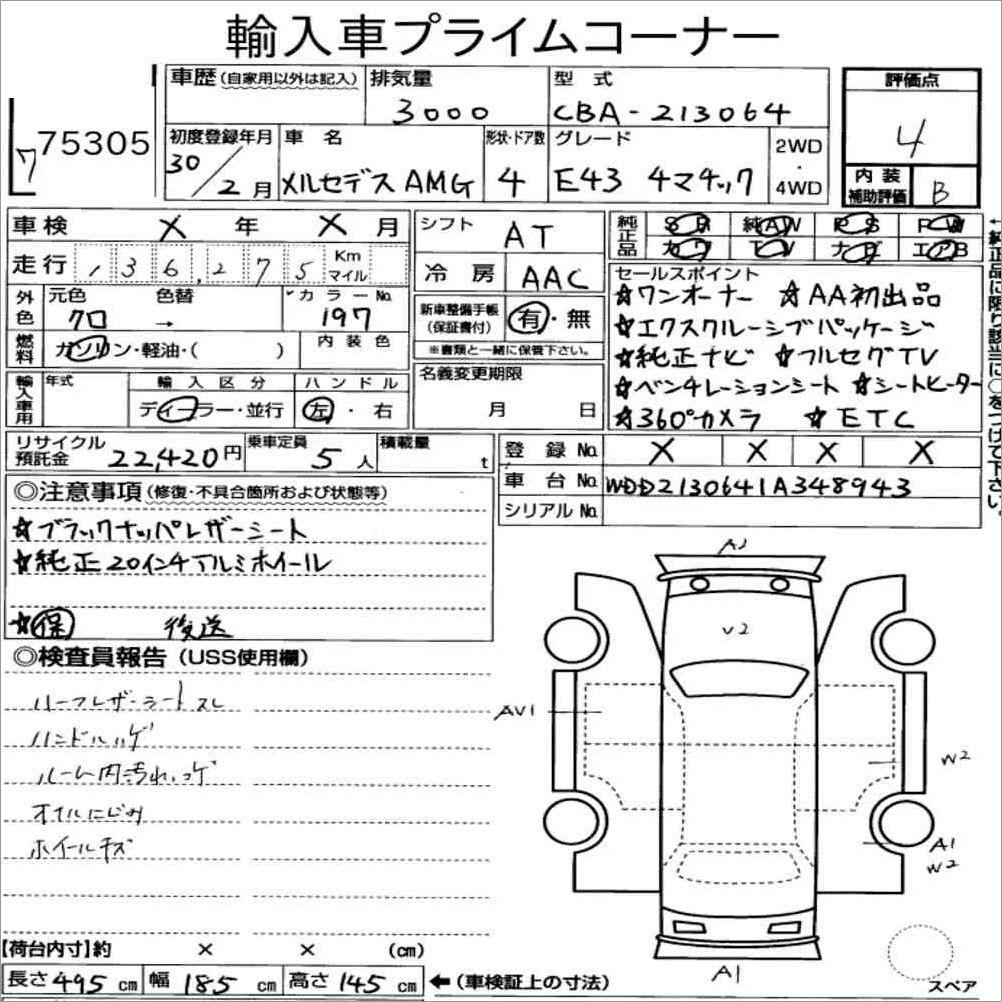 輸入車プライムコーナー
7 75305
車歴(自家用以外は記入)
排気量
3000
型式
CBA-213064
評価点
4
内装
補助評価
B
初度登録年月
30/2月
車名
メルセデスAMG
形状・ドア数
4
グレード
E43 4マチック
2WD
・
4WD
車検 X年 X月
シフト
AT
純正品
SR 純AW PS PW
カワ TV ナビ エアB
←純正品に限り該当に○をつけて下さい。
走行 136,275 Km マイル
冷房
AAC
セールスポイント
☆ワンオーナー ☆AA初出品
☆エクスクルーシブパッケージ
☆純正ナビ ☆フルセグTV
☆ベンチレーションシート ☆シートヒーター
☆360°カメラ ☆ETC
外色
元色
クロ
色替
→
カラーNo.
197
内装色
新車整備手帳
(保証書付)
有・無
※書類と一緒に保管下さい。
燃料
ガソリン・軽油・( )
名義変更期限
月 日
輸入車用
年式
輸入区分
ディーラー・並行
ハンドル
左・右
リサイクル
預託金
22,420円
乗車定員
5人
積載量
t
登録No. X X X X
車台No. WDD2130641A348943
シリアルNo.
◎注意事項(修復・不具合箇所および状態等)
☆ブラックナッパレザーシート
☆純正20インチアルミホイール
☆保 後送
◎検査員報告(USS使用欄)
ハーフレザーシートスレ
ハンドルハゲ
ルーム内汚れ、コゲ
オイルにじみ
ホイールキズ
A2
V2
AV1
W2
A1
W2
A1
スペア
【荷台内寸】約 × × (cm)
長さ495cm 幅185cm 高さ145cm ←(車検証上の寸法)